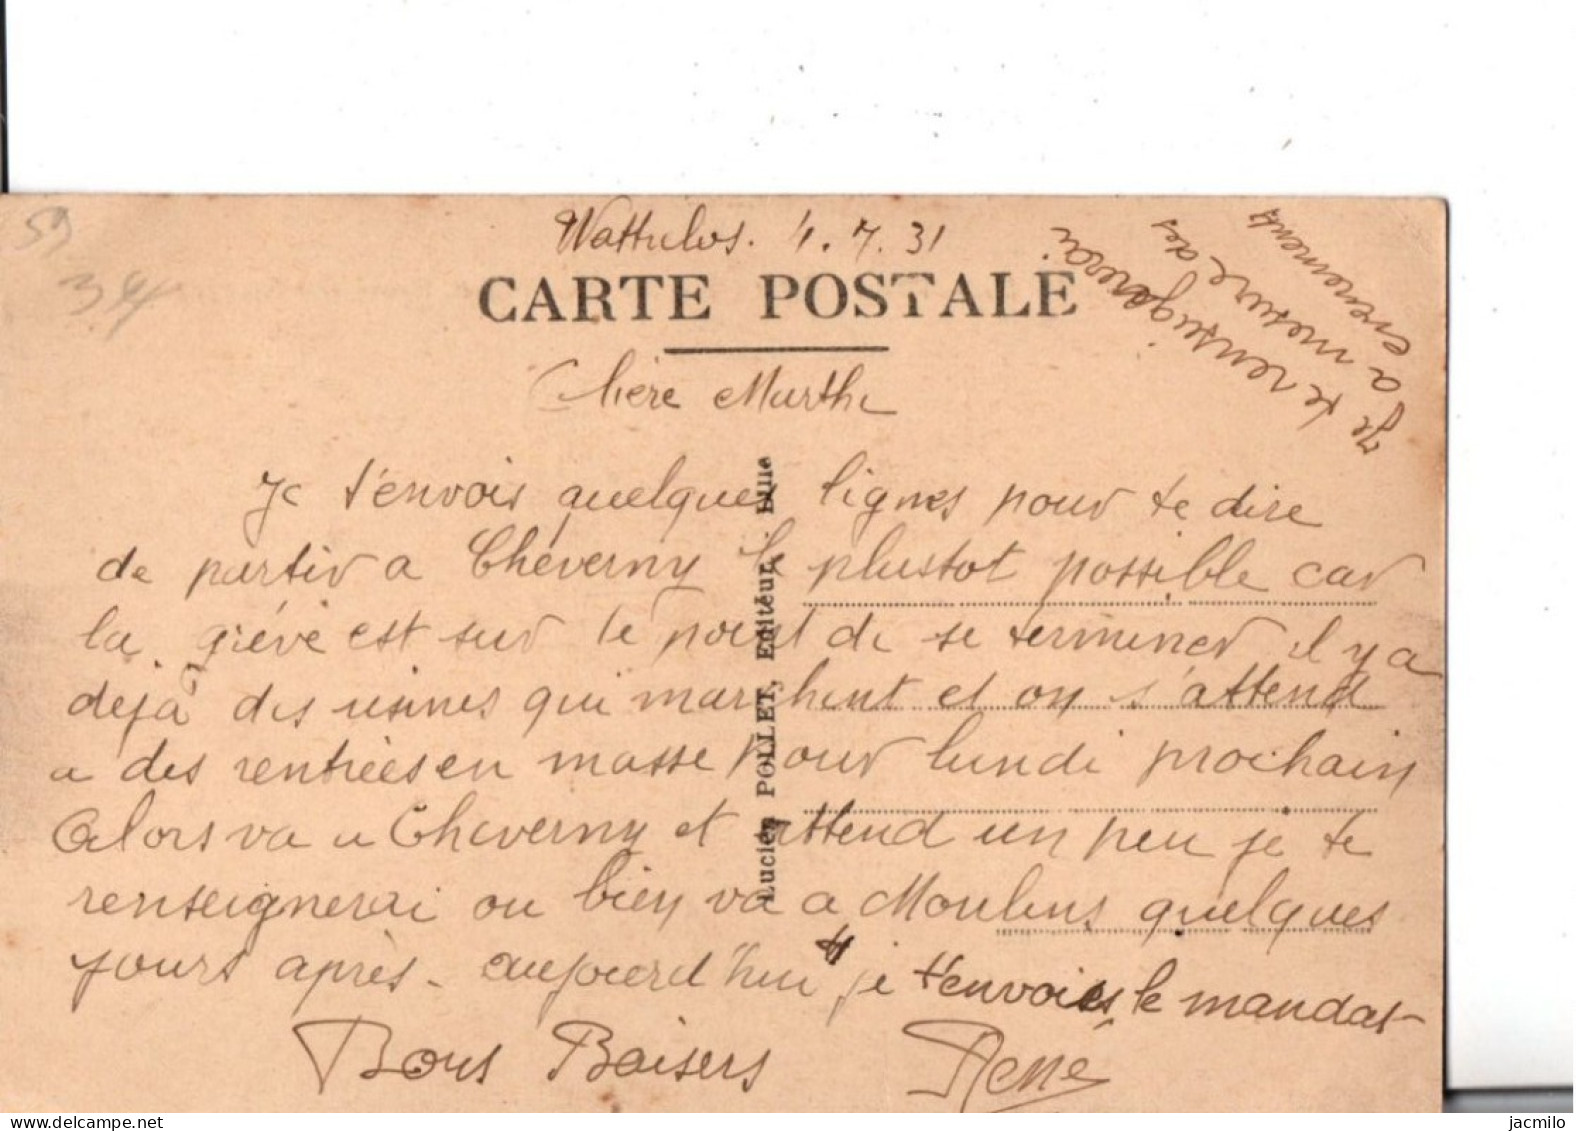 59
34
Wattrelos. 4.7.31
CARTE POSTALE
Je te renseignerai
a mesure des
evenements
Chère Marthe
Je t'envois quelques lignes pour te dire
de partir a Cheverny le plustot possible car
la grève est sur le point de se terminer il y a
dèjà des usines qui marchent et on s'attend
a des rentrées en masse pour lundi prochain
Alors va a Cheverny et attend un peu je te
renseignerai ou bien va a Moulins quelques
jours après. aujourd'hui je t'envoies le mandat
Bons Baisers René
Lucien POLLET, Editeur, Lille
jacmilo